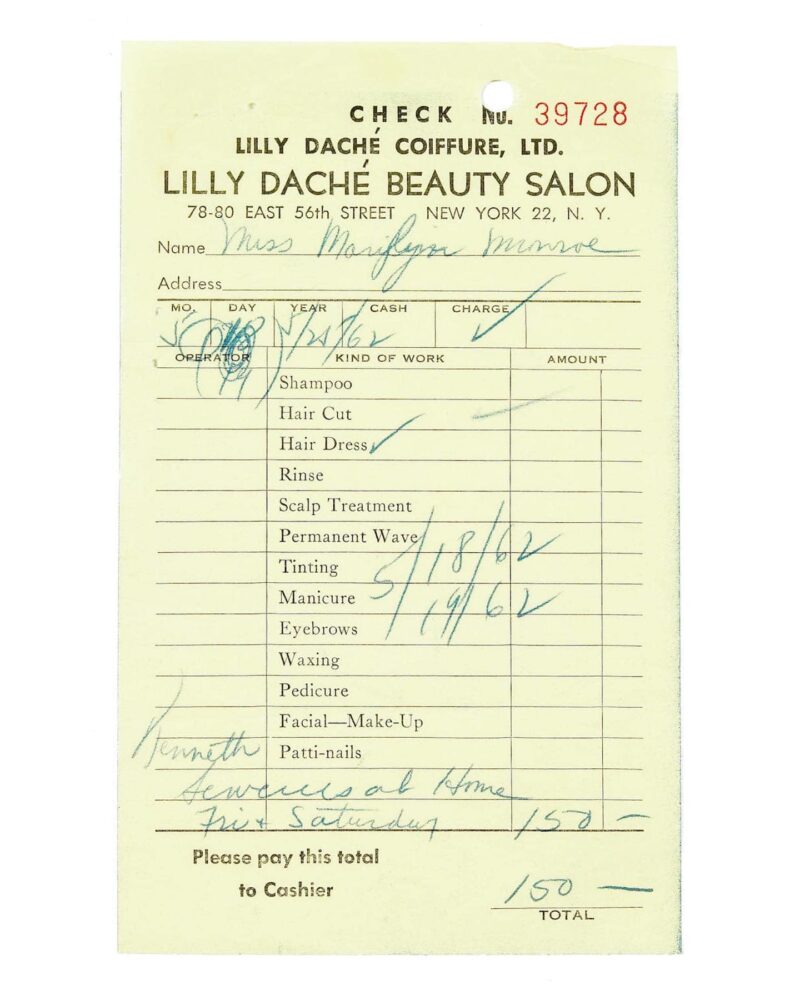 CHECK No. 39728
LILLY DACHÉ COIFFURE, LTD.
LILLY DACHÉ BEAUTY SALON
78-80 EAST 56th STREET NEW YORK 22, N. Y.
Name Miss Marilyn Monroe
Address
MO. DAY YEAR CASH CHARGE
5 5/21/62 ✓
OPERATOR KIND OF WORK AMOUNT
Shampoo
Hair Cut
Hair Dress ✓
Rinse
Scalp Treatment
Permanent Wave
Tinting 5/18/62
Manicure 19/62
Eyebrows
Waxing
Pedicure
Facial—Make-Up
Kenneth Patti-nails
at Home
Fri + Saturday 150 —
Please pay this total
to Cashier 150 —
TOTAL